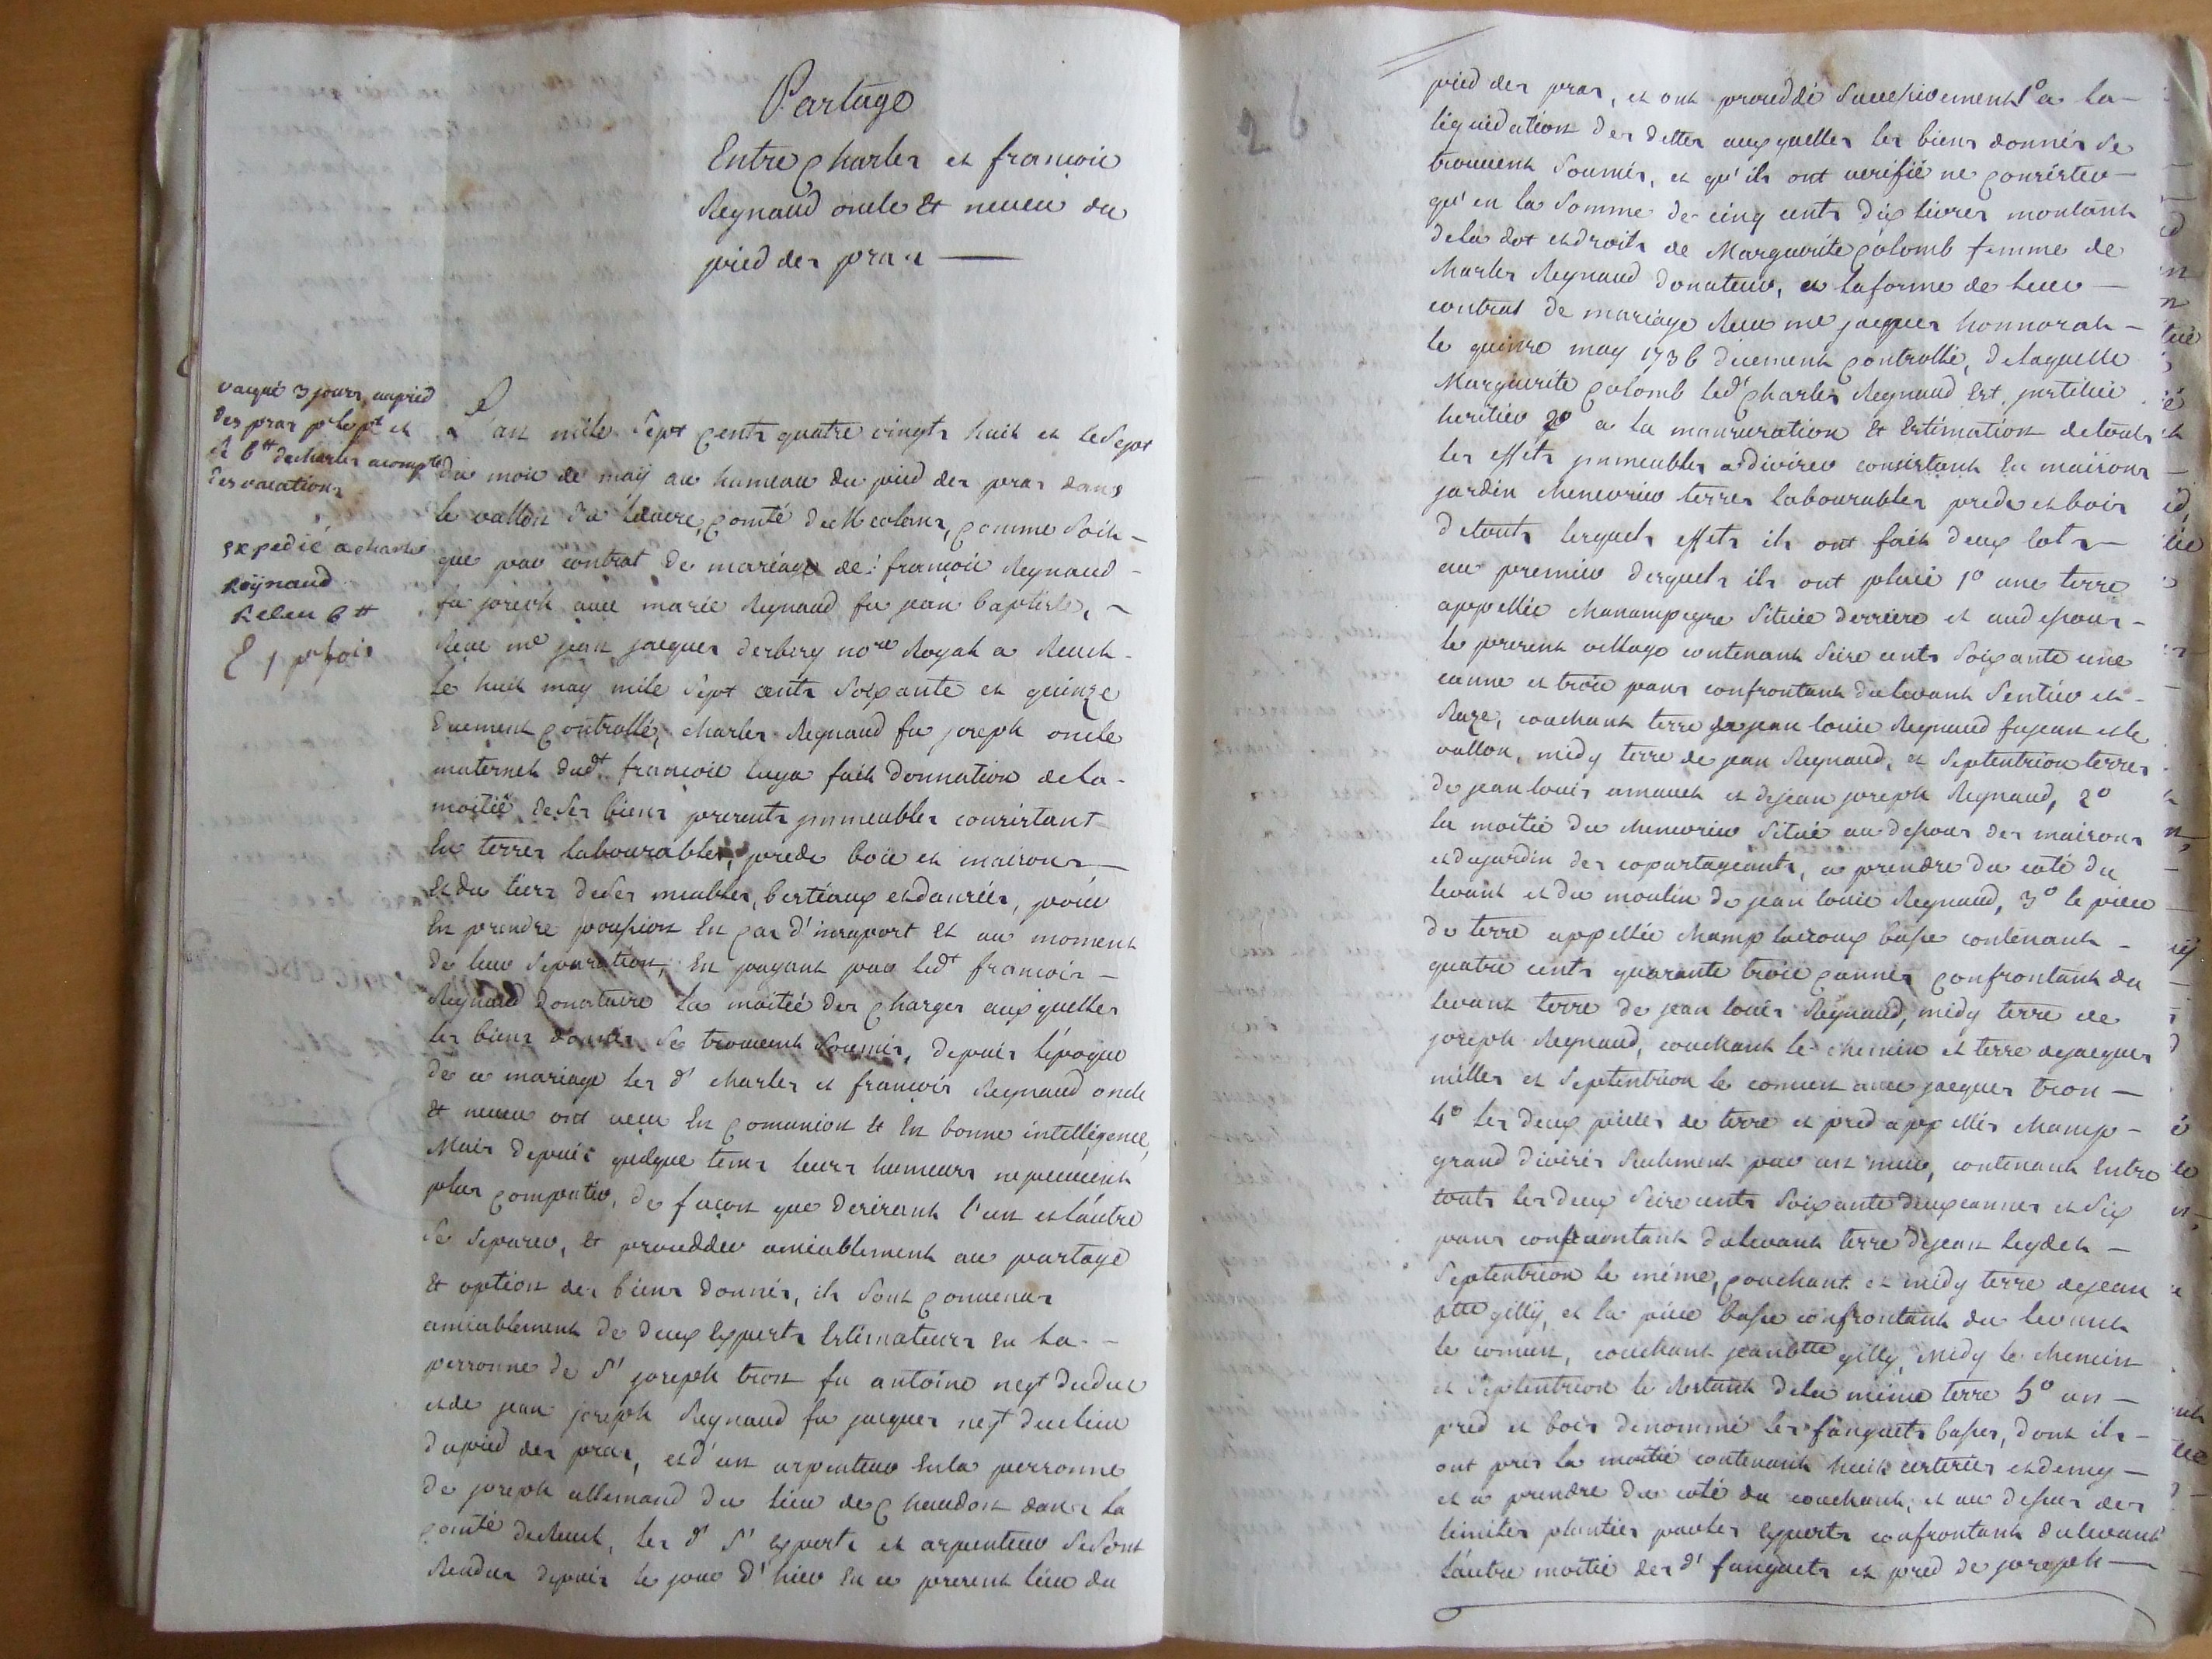 Partage
Entre Charles et francois
Reynaud oncle et neveu du
pied des pras
vaqué 3 jours au pied
des pras
de Charles acompte
des vacations
expedié a charles
Reynaud
Receu 6 tt
L'an mile sept cents quatre vingts huit et le sept
du mois de may au hameau du pied des pras dans
le vallon du comté de Meolans, comme soit
que par contrat de mariage de francois Reynaud
fu joseph avec marie Reynaud fu jean baptiste,
Receu me jean jacques derbezy nore Royal a Revel
le huit may mile sept cents soixante et quinze
duement controllé, charles Reynaud fu joseph oncle
maternel dudt francois luy a fait donnation de la
moitié de ses biens presents immeubles consistant
En terres labourables, preds bois et maisons
Et du tiers de ses meubles, bestiaux et danrées, pour
En prendre possion En cas d'insuport Et au moment
de leur separation, En payant par ledt francois
Reynaud donataire la moitié des charges auxquelles
les biens donnés se trouvent soumis, depuis l'epoque
de ce mariage les dt charles et francois Reynaud oncle
et neveu ont vecu En comunion et En bonne intelligence,
Mais depuis quelque tems leurs humeurs ne peuvent
plus compatir, de façon que desirant l'un et l'autre
se separer, et proceder amiablement au partage
Et option des biens donnés, ils sont convenus
amiablement de deux Experts Estimateurs En la
personne de Sr joseph tron fu antoine negt du
et de jean joseph Reynaud fu jacques negt du lieu
du pied des pras, et d'un arpenteur En la personne
de joseph allemand du lieu de Chaudon dans la
comté de Revel, les dt Srs Experts et arpenteur se sont
Rendus depuis le jour d'hier En ce present lieu du
26
pied des pras, et ont proceddé successivement 1o a la
liquidation des dettes auxquelles les biens donnés se
trouvent soumis, et qu'ils ont verifié ne consister
qu'en la somme de cinq cents dix livres montant
de la dot et droits de Marguerite Colomb femme de
charles Reynaud donateur, a la forme de leur
contrat de mariage Receu me jacques honnorat
le quinze may 1736 duement controllé, de laquelle
Marguerite Colomb ledt Charles Reynaud Est
heritier 2o a la mensuration Et Estimation de touts
les effets immeubles a diviser consistant En maisons
jardin chenevrier terres labourables preds et bois
de touts lesquels effets ils ont fait deux lots
au premier desquels ils ont placé 1o une terre
appellée Chanampeyre située derriere et au dessous
le present village contenant seize cents soixante une
canne et trois pans confrontant du levant sentier et
Raze, couchant terre de jean louis Reynaud fu jean et le
vallon, midy terre de jean Reynaud, et septentrion terres
de jean louis arnaud et de jean joseph Reynaud, 2o
la moitié du chenevrier situé au dessous des maisons
et du jardin des copartageants, a prendre du coté du
levant et du moulin de jean louis Reynaud, 3o la piece
de terre appellée champ lacroux basse contenant
quatre cents quarante trois cannes confrontant du
levant terre de jean louis Reynaud, midy terre de
joseph Reynaud, couchant le chemin et terre de jacques
milles et septentrion le comun avec jacques tron
4o les deux pieces de terre et pred appellés champ
grand divisés seulement par un mur, contenant Entre
touts les deux seize cents soixante deux cannes et six
pans confrontant du levant terre de jean
septentrion le même, couchant et midy terre de jean
btte gilly, et la piece basse confrontant du levant
le comun, couchant jean btte gilly, midy le chemin
et septentrion le Restant de la même terre 5o un
pred et bois denommé les fanguets basses, dont ils
ont pris la moitié contenant huit et demy
et a prendre du coté du couchant, et au dessus des
limites plantées par les Experts confrontant du levant
l'autre moitié des dt fanguets et pred de joseph